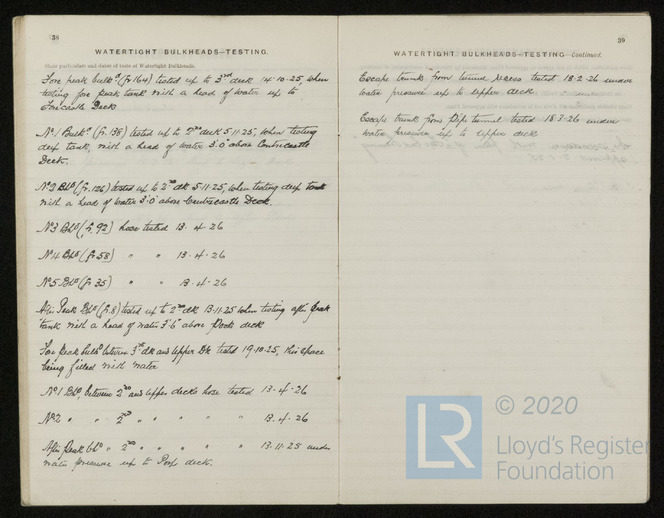 38
WATERTIGHT BULKHEADS—TESTING.
State particulars and dates of tests of Watertight Bulkheads.
Fore peak bulkd (fr 164) tested up to 3rd deck 14·10·25, when
testing fore peak tank with a head of water up to
Forecastle Deck
No 1 Bulkd (fr. 138) tested up to 2nd deck 5·11·25, when testing
deep tank, with a head of water 3'.0" above Centrecastle
Deck.
No 2 Bhd (fr. 126) tested up to 2nd dk 5·11·25, when testing deep tank
with a head of water 3'.0" above Centrecastle Deck.
No 3 Bhd (fr. 92) hose tested 13·4·26
No 4 Bhd (fr 58) " " 13·4·26
No 5 Bhd (fr 35) " " 13·4·26
After Peak Bhd (fr. 8) tested up to 2nd dk 13·11·25 when testing after peak
tank with a head of water 3'.6" above Poop deck
Fore peak bulkd between 3rd dk and upper Dk tested 19·10·25, this space
being filled with water
No 1 Bhd, between 2nd and upper decks hose tested 13·4·26
No 2 " " 2nd " " " " " 13·4·26
After Peak bhd " 2nd " " " " " 13·11·25 under
water pressure up to Poop deck.
39
WATERTIGHT BULKHEADS—TESTING Continued.
Escape trunk from tunnel recess tested 18·2·26 under
water pressure up to upper deck
Escape trunk from Pipe tunnel tested 18·3·26 under
water pressure up to upper deck
LR
© 2020
Lloyd's Register
Foundation